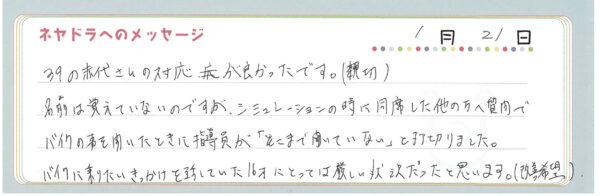 ネヤドラへのメッセージ
1月21日
39の赤代さんの対応 が良かったです。(親切)
名前は覚えていないのですが、シミュレーションの時に同席した他の方へ質問で
バイクの事を聞いたときに指導員が「そこまで聞いていない」と打切りました。
バイクに乗りたいきっかけを話していた16才にとっては厳しい状況だったと思います。(改善希望)